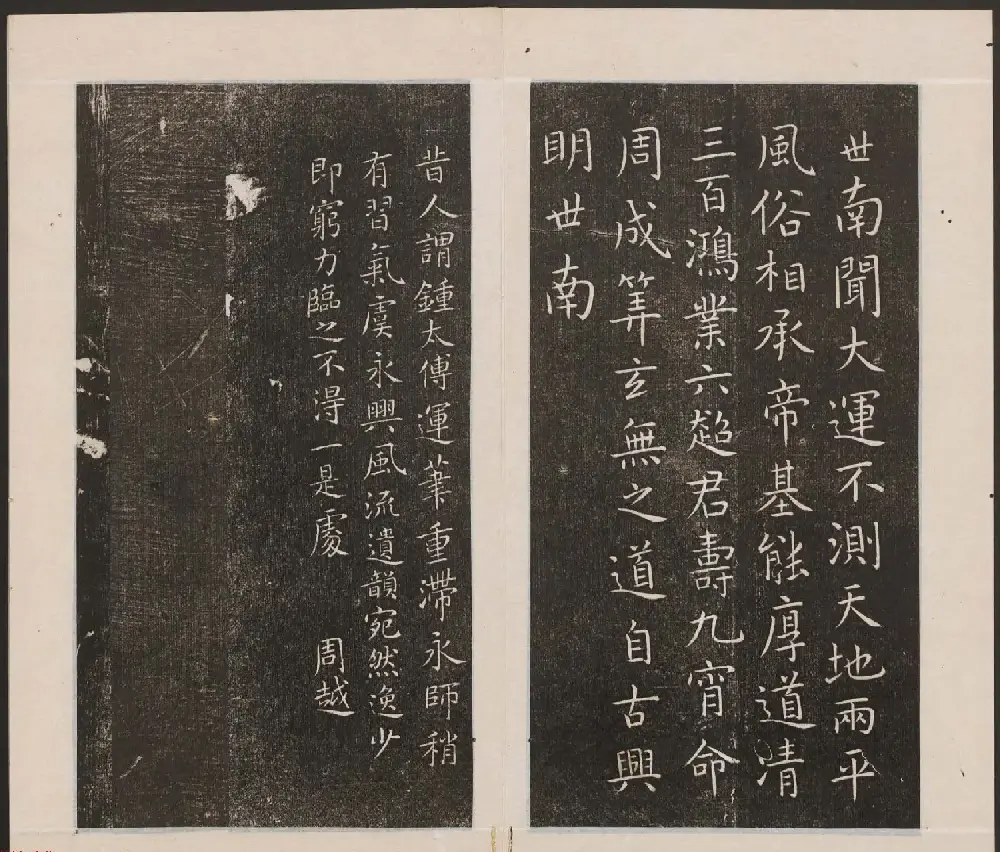 世南聞大運不測天地兩平
風俗相承帝基能厚道清
三百鴻業六超君壽九霄命
周成筭玄無之道自古興
明世南
昔人謂鍾太傅運筆重滯永師稍
有習氣虞永興風流遺韻宛然逸少
即窮力臨之不得一是處
周越